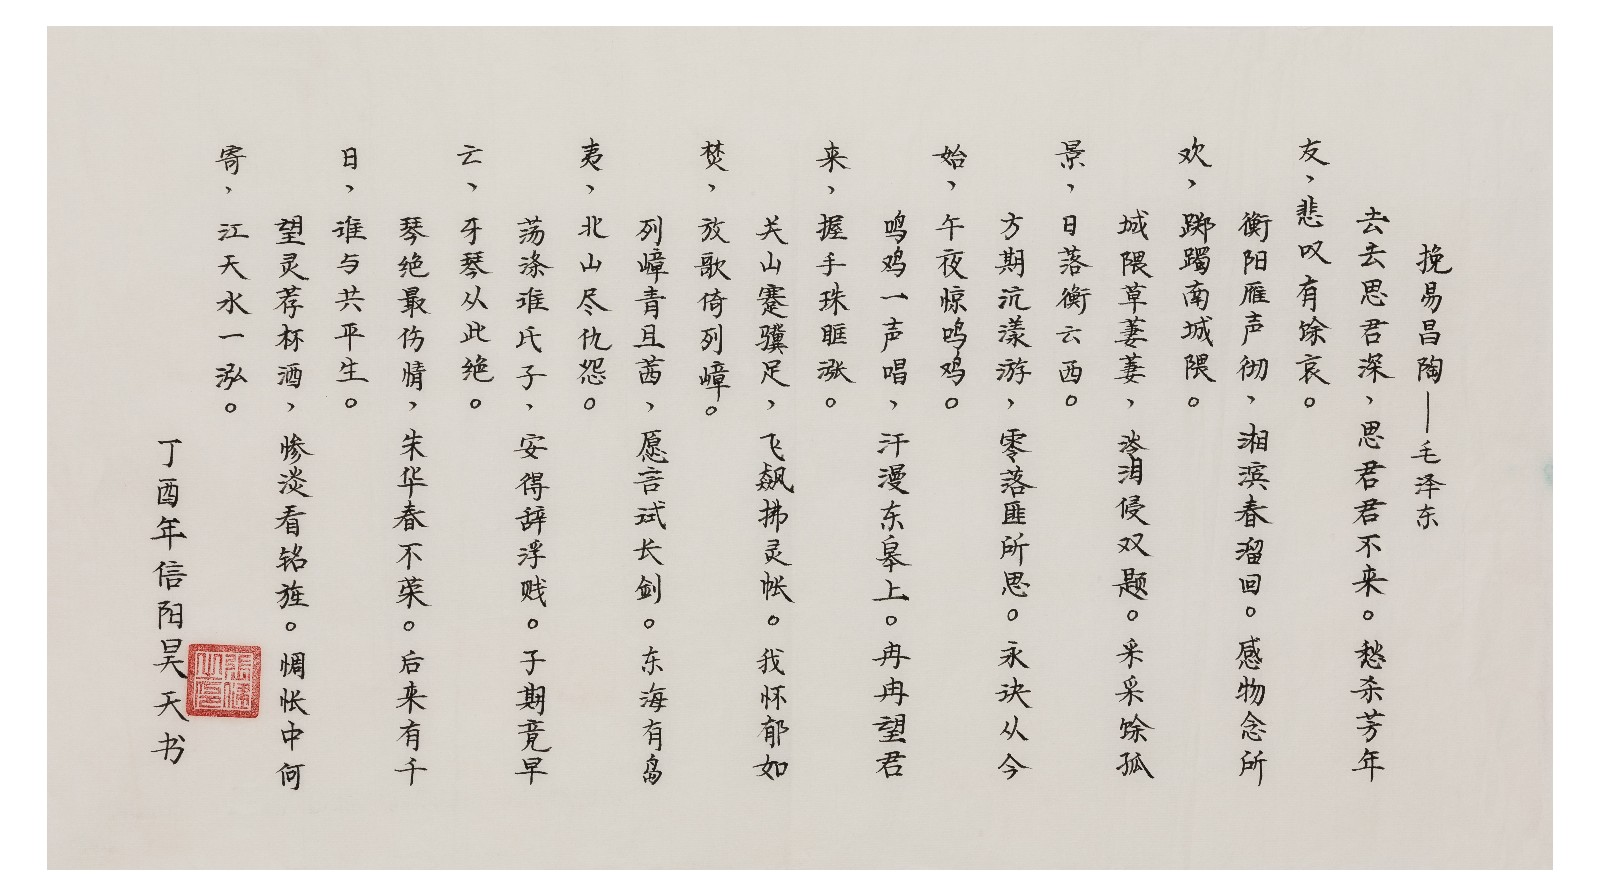 挽易昌陶—毛泽东
去去思君深、思君君不来。愁杀芳年
友、悲叹有馀哀。
衡阳雁声彻、湘滨春溜回。感物念所
欢，踯躅南城隈。
城隈草萋萋、涔泪侵双题。采采馀孤
景，日落衡云西。
方期沆漾游，零落匪所思。永诀从今
始、午夜惊鸣鸡。
鸣鸡一声唱，汗漫东皋上。冉冉望君
来，握手珠眶涨。
关山蹇骥足，飞飙拂灵帐。我怀郁如
焚、放歌倚列嶂。
列嶂青且茜，愿言试长剑。东海有岛
夷，北山尽仇怨。
荡涤谁氏子、安得辞浮贱。子期竟早
云、牙琴从此绝。
琴绝最伤情，朱华春不荣。后来有千
日，谁与共平生。
望灵荐杯酒，惨淡看铭旌。惆怅中何
寄，江天水一泓。
丁酉年信阳昊天书